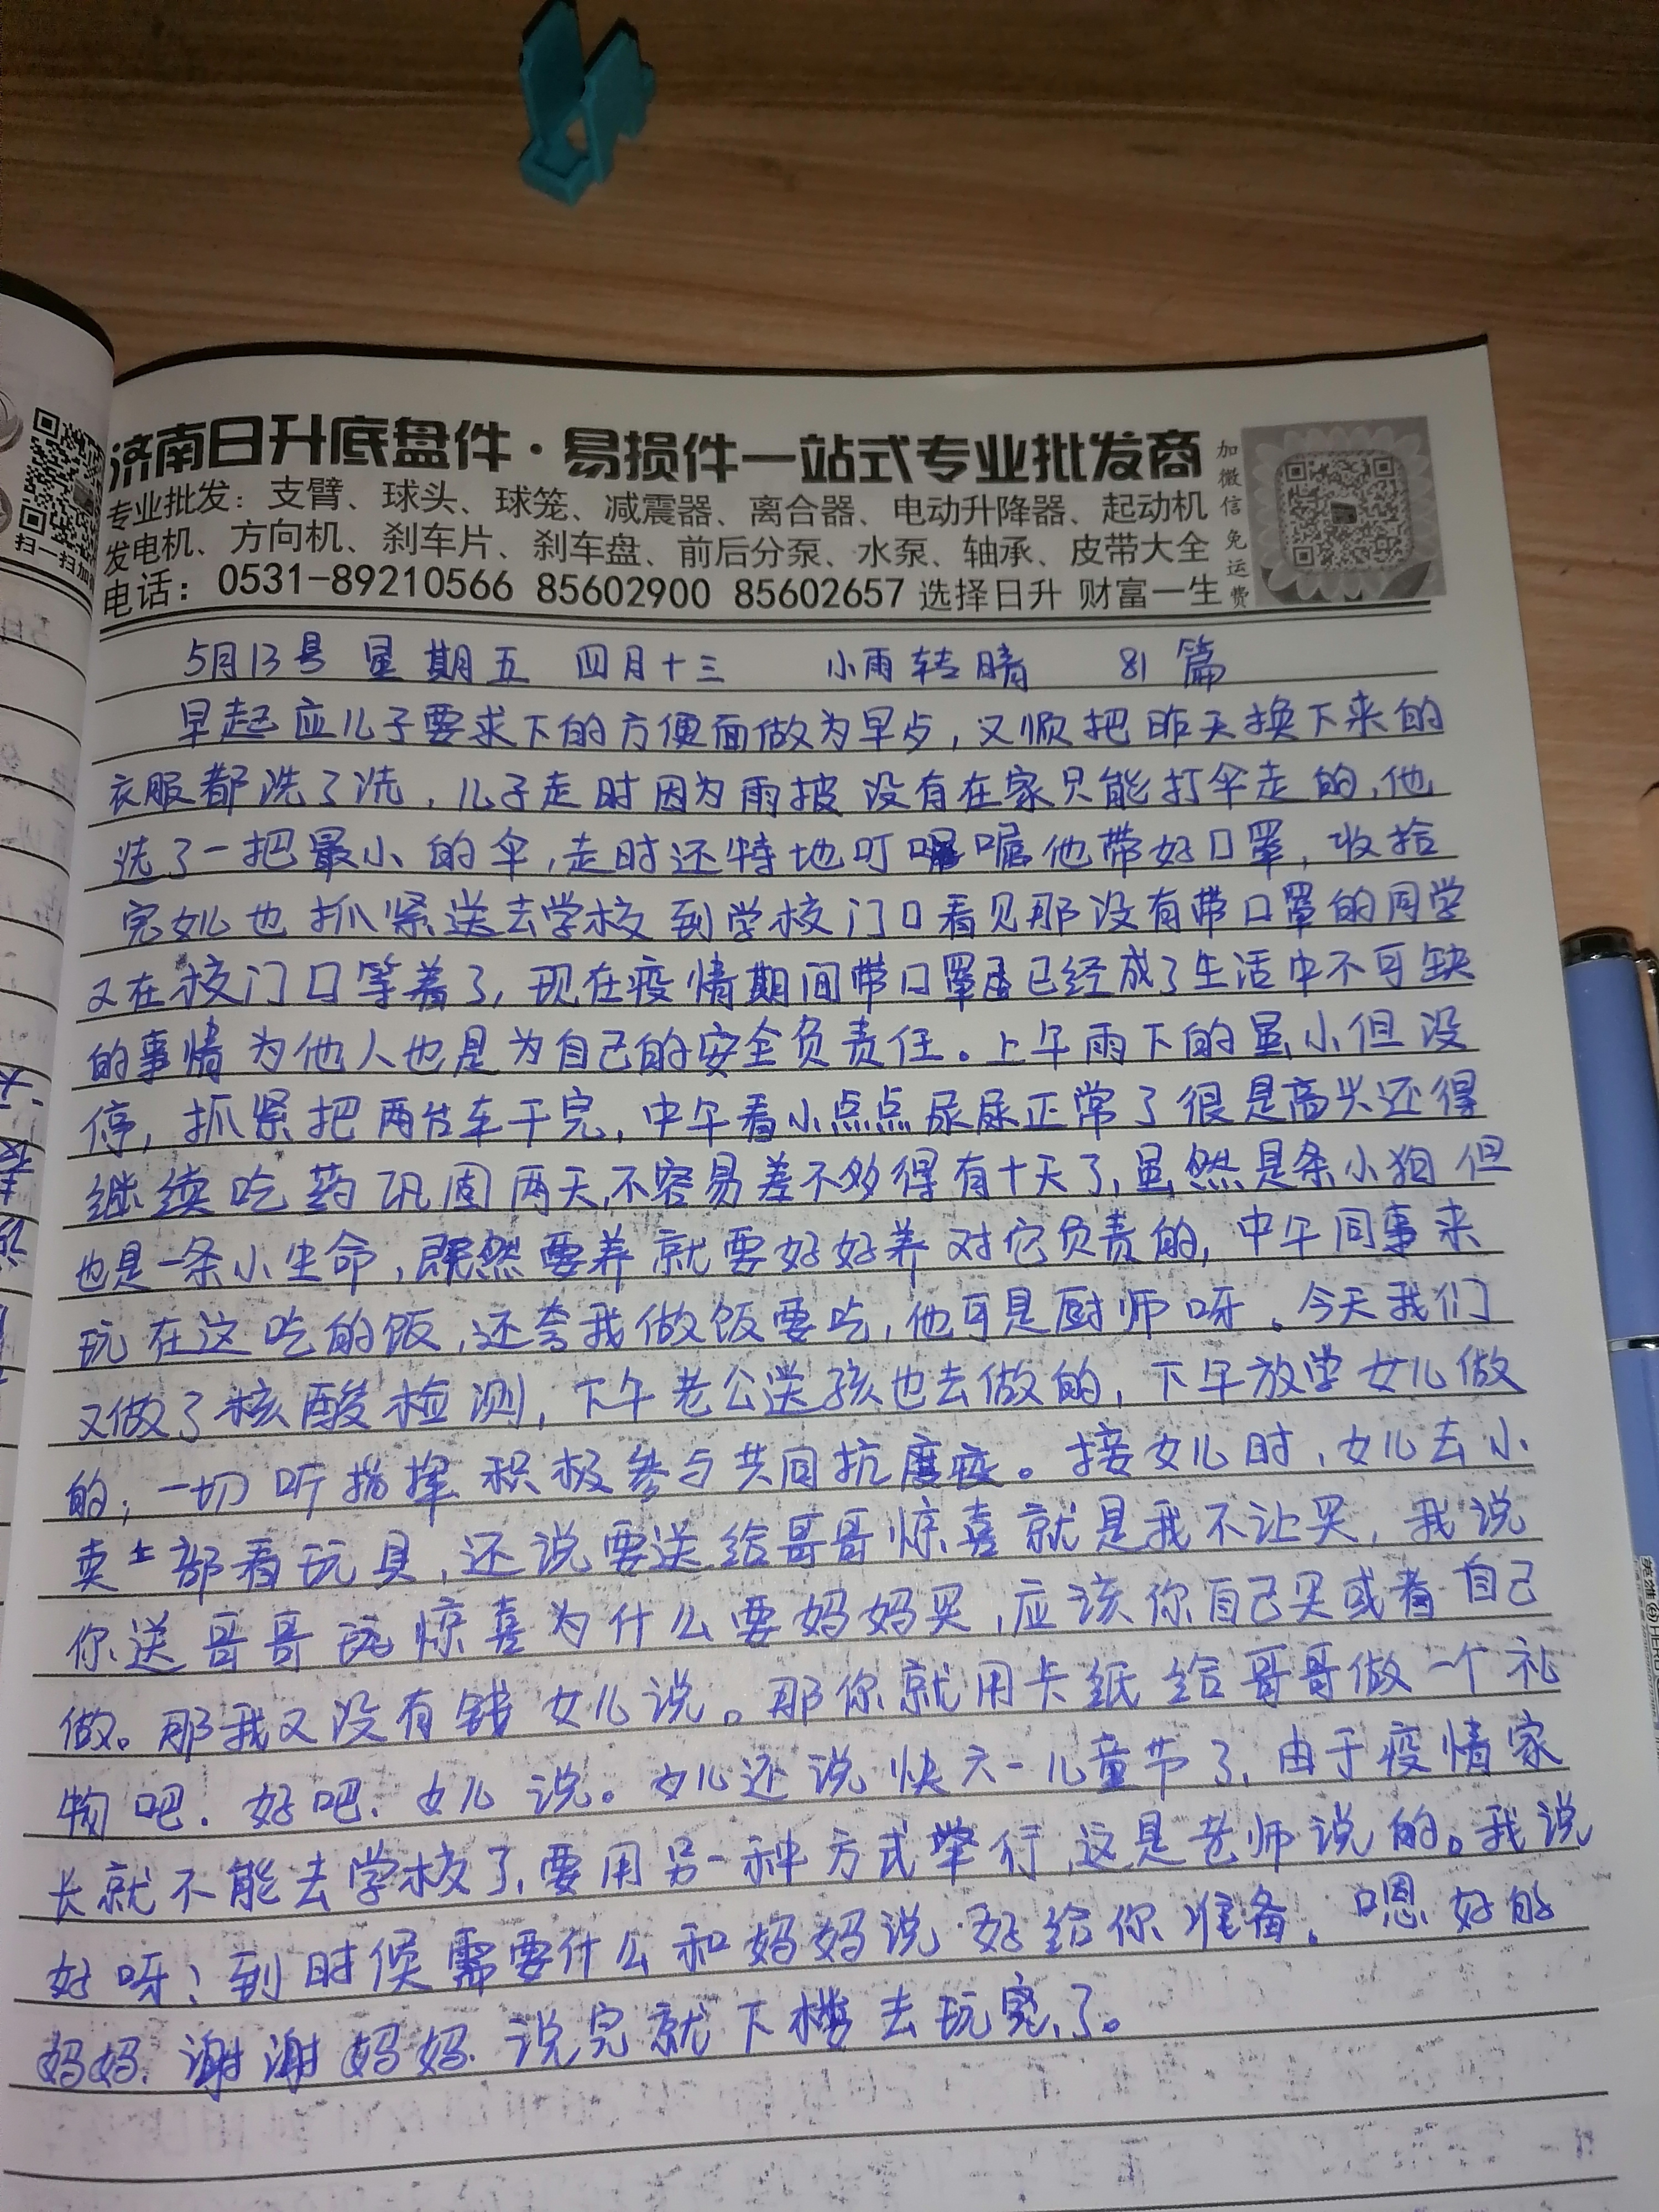 济南日升底盘件·易损件一站式专业批发商
专业批发：支臂、球头、球笼、减震器、离合器、电动升降器、起动机
发电机、方向机、刹车片、刹车盘、前后分泵、水泵、轴承、皮带大全
电话：0531-89210566 85602900 85602657 选择日升 财富一生
加微信免运费
扫一扫加
5月13号 星期五 四月十三 小雨转晴 81篇
早起应儿子要求下的方便面做为早点，又顺把昨天换下来的
衣服都洗了洗，儿子走时因为雨披没有在家只能打伞走的，他
选了一把最小的伞，走时还特地叮嘱他带好口罩，收拾
完女儿也抓紧送去学校到学校门口看见那没有带口罩的同学
又在校门口等着了，现在疫情期间带口罩已经成了生活中不可缺
的事情为他人也是为自己的安全负责任。上午雨下的虽小但没
停，抓紧把两台车干完，中午看小点点尿尿正常了很是高兴还得
继续吃药巩固两天，不容易差不多得有十天了，虽然是条小狗但
也是一条小生命，既然要养就要好好养对它负责的，中午同事来
玩在这吃的饭，还夸我做饭要吃，他可是厨师呀。今天我们
又做了核酸检测，下午老公送孩也去做的，下午放学女儿做
的，一切听指挥积极参与共同抗疫。接女儿时，女儿去小
卖部看玩具，还说要送给哥哥惊喜就是我不让买，我说
你送哥哥玩惊喜为什么要妈妈买，应该你自己买或者自己
做。那我又没有钱女儿说。那你就用卡纸给哥哥做一个礼
物吧．好吧．女儿说。女儿还说快六一儿童节了，由于疫情家
长就不能去学校了，要用另一种方式举行，这是老师说的。我说
好呀！到时候需要什么和妈妈说好给你准备。嗯好的
妈妈．谢谢妈妈．说完就下楼去玩了。
英雄 HERO